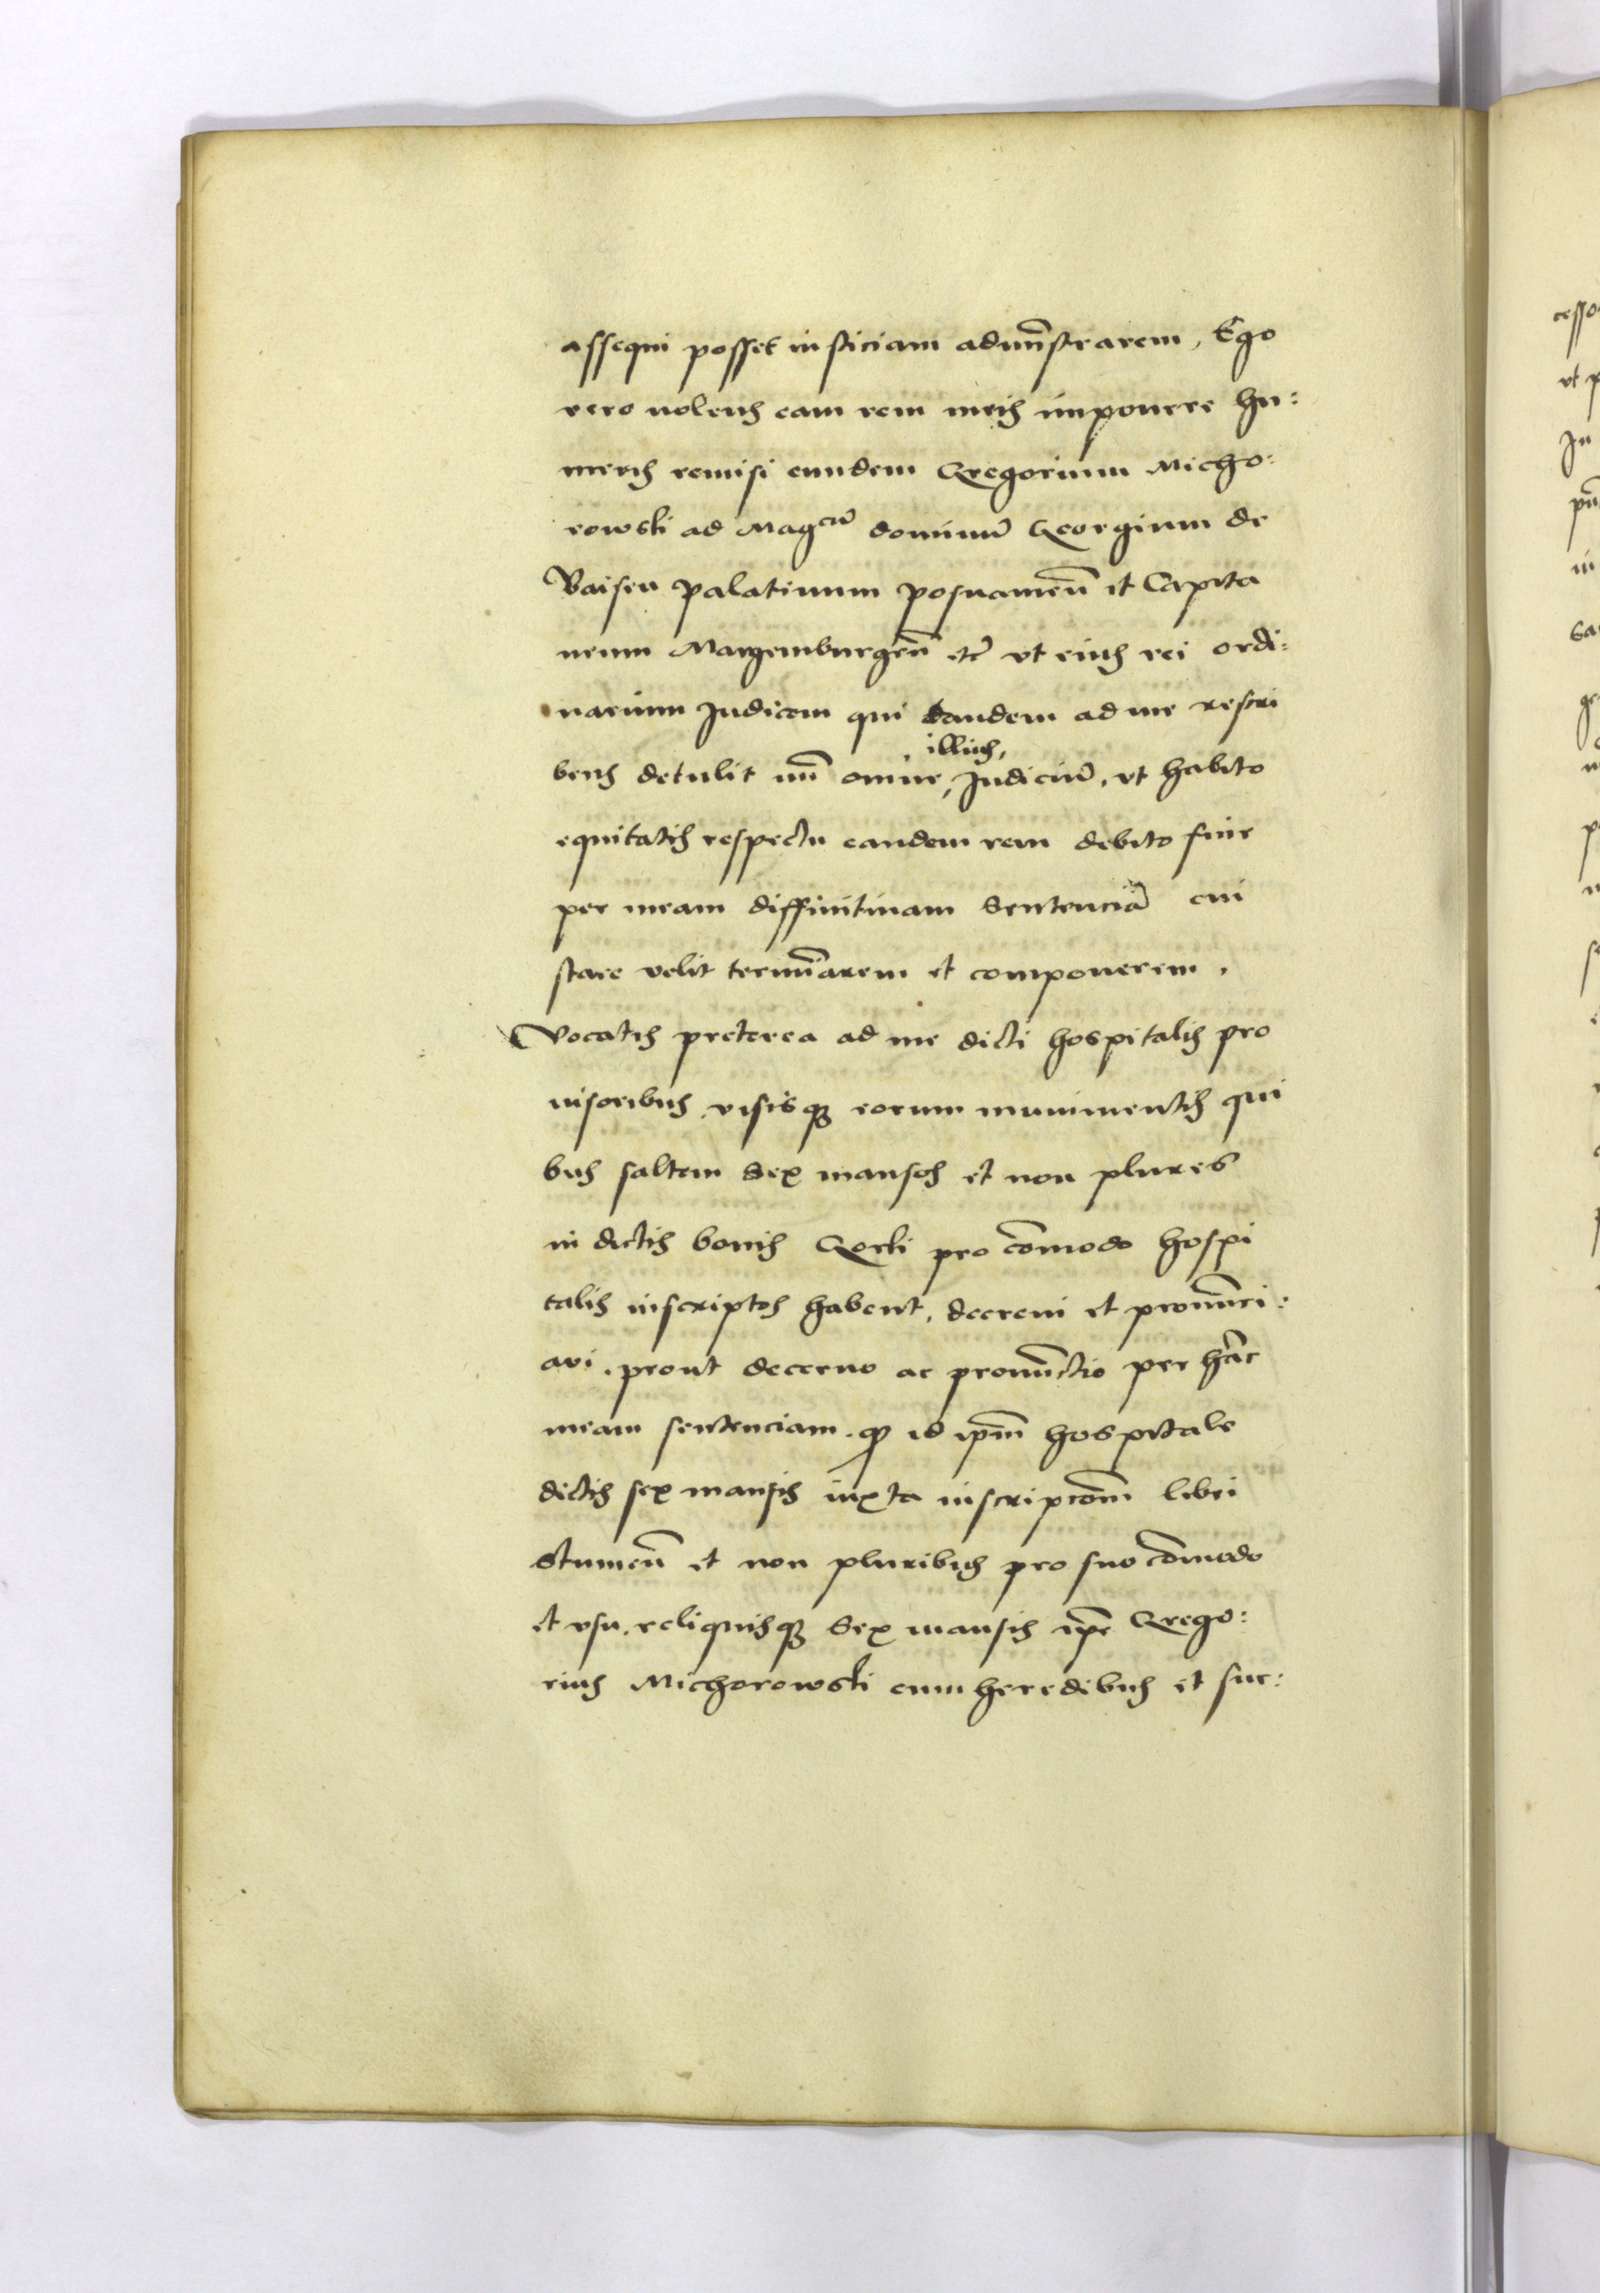 assequi posset iusticiam adm̄nstrarem, Ego
vero nolens eam rem meis imponere hu:
meris remisi eundem Gregorium Micho:
rowski ad Mag^cū dominū Georgium de
Baisen palatinum posnameñ et Capita
neum Margemburgeñ etc̄ vt eius rei ordi:
narium Iudicem qui tandem ad me rescri
bens detulit mī omne, illius, Iudiciū, vt habito
equitatis respectu eandem rem debito fine
per meam diffinitiuam Sentenciā cui
stare velit termīarem et componerem,
Vocatis preterea ad me dicti hospitalis pro
uisoribus, visisqꝫ eorum munimentis qui
bus saltem Sex mansos et non plures
in dictis bonis Gorki pro com̄odo hospi
talis inscriptos habent, decreui et pronūnci:
aui, prout decerno ac pronūnctio per hāc
meam sentenciam, qꝫ id ip̄m hospitale
dictis sex mansis iuxta inscripcoēm libri
Stumeñ et non pluribus pro suo com̄odo
et vsu, reliquisqꝫ Sex mansis ip̄e Grego:
rius Michorowski cum heredibus et suc: